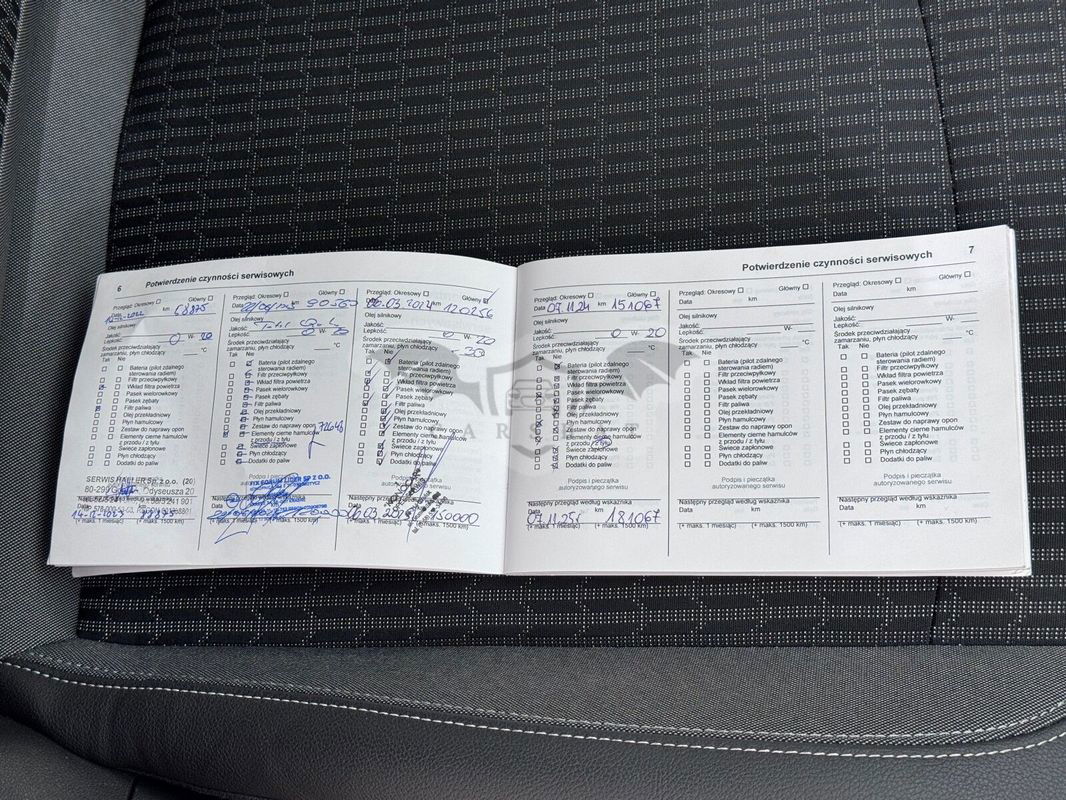 6 Potwierdzenie czynności serwisowych
Przegląd: Okresowy Główny
Data km 68875
Olej silnikowy
Jakość:
Lepkość: 0 W- 20
Środek przeciwdziałający
zamarzaniu, płyn chłodzący °C
Tak Nie
Bateria (pilot zdalnego
sterowania radiem)
Filtr przeciwpyłkowy
Wkład filtra powietrza
Pasek wielorowkowy
Pasek zębaty
Filtr paliwa
Olej przekładniowy
Płyn hamulcowy
Zestaw do naprawy opon
Elementy cierne hamulców
z przodu / z tyłu
Świece zapłonowe
Dodatki do paliw
SERWIS HALLER Sp. z o.o. (20)
Odyseusza 20
Data km
(+ maks. 1 miesiąc) (+ maks. 1500 km)
Przegląd: Okresowy Główny
Data km 90560
Olej silnikowy
Jakość:
Lepkość: 0 W- 20
Środek przeciwdziałający
zamarzaniu, płyn chłodzący °C
Tak Nie
Bateria (pilot zdalnego
sterowania radiem)
Filtr przeciwpyłkowy
Wkład filtra powietrza
Pasek wielorowkowy
Pasek zębaty
Filtr paliwa
Olej przekładniowy
Płyn hamulcowy
Zestaw do naprawy opon
Elementy cierne hamulców
z przodu / z tyłu
Świece zapłonowe
Dodatki do paliw
Podpis i pieczątka
SP Z O.O.
(+ maks. 1 miesiąc) (+ maks. 1500 km)
Przegląd: Okresowy Główny
Data 26.03.2024 km 120256
Olej silnikowy
Jakość:
Lepkość: 0 W- 20
Środek przeciwdziałający
zamarzaniu, płyn chłodzący °C
Tak Nie
Bateria (pilot zdalnego
sterowania radiem)
Filtr przeciwpyłkowy
Wkład filtra powietrza
Pasek wielorowkowy
Pasek zębaty
Filtr paliwa
Olej przekładniowy
Płyn hamulcowy
Zestaw do naprawy opon
Elementy cierne hamulców
z przodu / z tyłu
Świece zapłonowe
Dodatki do paliw
Podpis i pieczątka
Następny przegląd według wskaźnika
150000
(+ maks. 1 miesiąc) (+ maks. 1500 km)
7
Potwierdzenie czynności serwisowych
Przegląd: Okresowy Główny
Data 07.11.24 km 151067
Olej silnikowy
Jakość:
Lepkość: 0 W- 20
Środek przeciwdziałający
zamarzaniu, płyn chłodzący °C
Tak Nie
Bateria (pilot zdalnego
sterowania radiem)
Filtr przeciwpyłkowy
Wkład filtra powietrza
Pasek wielorowkowy
Pasek zębaty
Filtr paliwa
Olej przekładniowy
Płyn hamulcowy
Zestaw do naprawy opon
Elementy cierne hamulców
z przodu / z tyłu
Świece zapłonowe
Dodatki do paliw
Podpis i pieczątka
autoryzowanego serwisu
Następny przegląd według wskaźnika
Data km
07.11.25r 181067
(+ maks. 1 miesiąc) (+ maks. 1500 km)
Przegląd: Okresowy Główny
Data km
Olej silnikowy
Jakość:
Lepkość: W-
Środek przeciwdziałający
zamarzaniu, płyn chłodzący °C
Tak Nie
Bateria (pilot zdalnego
sterowania radiem)
Filtr przeciwpyłkowy
Wkład filtra powietrza
Pasek wielorowkowy
Pasek zębaty
Filtr paliwa
Olej przekładniowy
Płyn hamulcowy
Zestaw do naprawy opon
Elementy cierne hamulców
z przodu / z tyłu
Świece zapłonowe
Dodatki do paliw
Podpis i pieczątka
autoryzowanego serwisu
Następny przegląd według wskaźnika
Data km
(+ maks. 1 miesiąc) (+ maks. 1500 km)
Przegląd: Okresowy Główny
Data km
Olej silnikowy
Jakość:
Lepkość: W-
Środek przeciwdziałający
zamarzaniu, płyn chłodzący °C
Tak Nie
Bateria (pilot zdalnego
sterowania radiem)
Filtr przeciwpyłkowy
Wkład filtra powietrza
Pasek wielorowkowy
Pasek zębaty
Filtr paliwa
Olej przekładniowy
Płyn hamulcowy
Zestaw do naprawy opon
Elementy cierne hamulców
z przodu / z tyłu
Świece zapłonowe
Dodatki do paliw
Podpis i pieczątka
autoryzowanego serwisu
Następny przegląd według wskaźnika
Data km
(+ maks. 1 miesiąc) (+ maks. 1500 km)